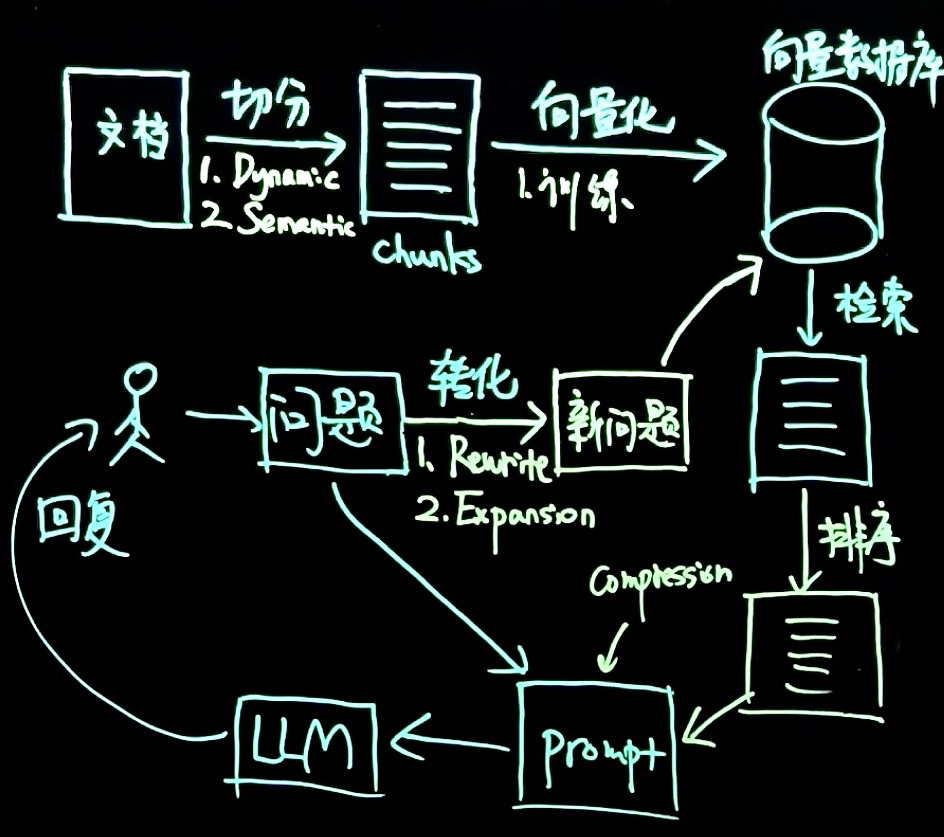 向量数据库
文档
切分
1. Dynamic
2. Semantic
chunks
向量化
1. 训练
检索
问题
转化
1. Rewrite
2. Expansion
新问题
回复
排序
Compression
LLM
prompt